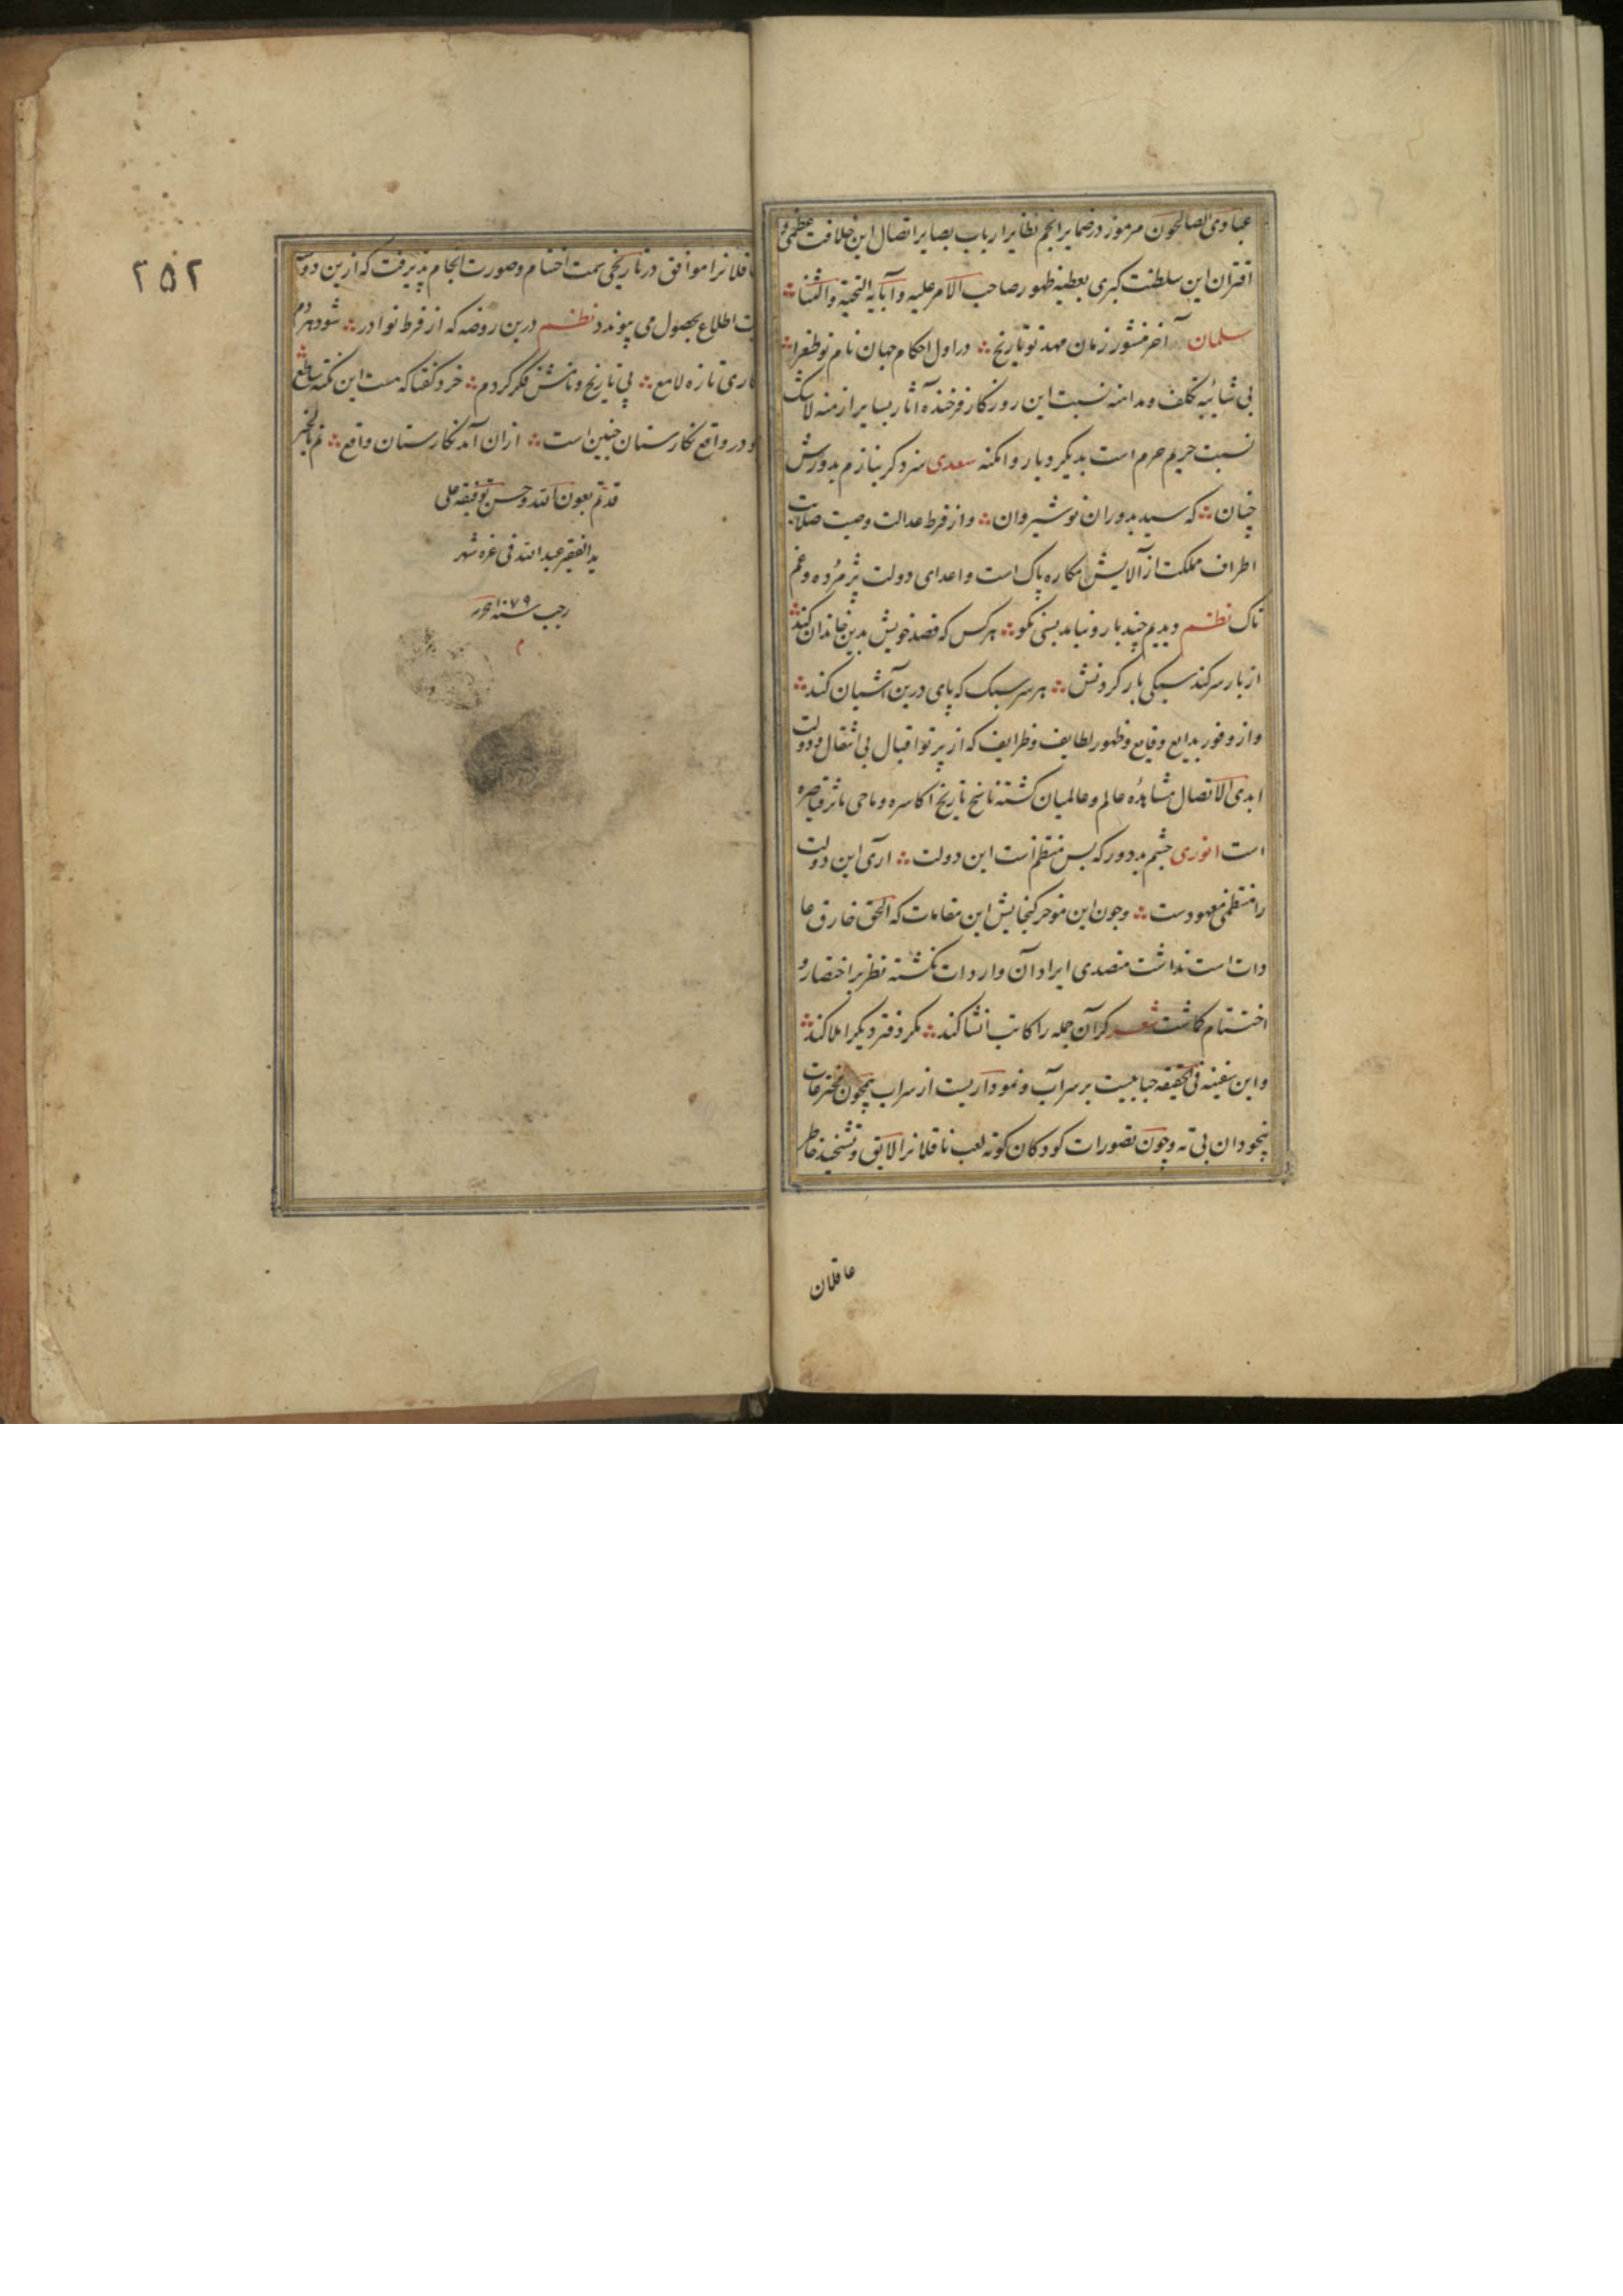 عبادی الصالحون مرموز در ضمایر انجم نظایر ارباب بصایر اتصال این خلافت عظمی و
اقتران این سلطنت کبری بعطیه ظهور صاحب الامر علیه و آبایه التحیة والثنا
سلمان آخر منشور زمان مهد تو تاریخ در اول احکام جهان نام تو طغرا
بی شائبه تکلف و مداهنه نسبت این روزکار فرخنده آثار بسایر ازمنه لاشک
نسبت حریم حرم است بدیکر دیار و امکنه سعدی سزد کر بنازم بدورش
چنان که سید بدوران نوشیروان و از فرط عدالت وصیت صلابت
اطراف مملکت از آلایش مکاره پاک است و اعدای دولت پژمرده و غم
ناک نظم دیدیم چند بار و نیامد بسی نکو هر کس که قصد خویش بدین خاندان کند
از بار سر کند سبکی بار کردنش هر سر سبک که پای درین آشیان کند
و از وفور بدایع وقایع و ظهور لطایف و ظرایف که از پرتو اقبال بی انتقال و دولت
ابدی الاتصال مشاهده عالم و عالمیان کشته ناسخ تاریخ اکاسره و ماحی مآثر قیاصره
است انوری چشم بد دور که بس منتظم است این دولت آری این دولت
را منتظمی معهودست و چون این موجز کنجایش این مقامات که الحق خارق عا
دات است نداشت متصدی ایراد آن واردات نکشته نظر بر اختصار و
اختتام کماشت شعر کر آن جمله را کاتب انشا کند مکر دفتر دیکر املا کند
و این سفینه فی الحقیقه حبابیست بر سر آب و نموداریست از سراب همچون مخترعات
بیخودان بی ته و چون تصورات کودکان کوته لعب ناقلانرا لایق و تشحیذ خاطر
عاقلان
عاقلانرا موافق در تاریخی سمت اختتام و صورت انجام پذیرفت که ازین دو
اطلاع بحصول می پیوندد نظم درین روضه که از فرط نوادر شود هردم
تازه لامع پی تاریخ و نامش فکر کردم خرد کفتا که هست این نکته ساطع
و در واقع نکارستان چنین است ازان آمد نکارستان واقع تم بالخیر
قد تم بعون الله و حسن توفیقه علی
ید الفقیر عبد الله فی غره شهر
رجب سنه ۱۰۷۹
م
۲۵۲